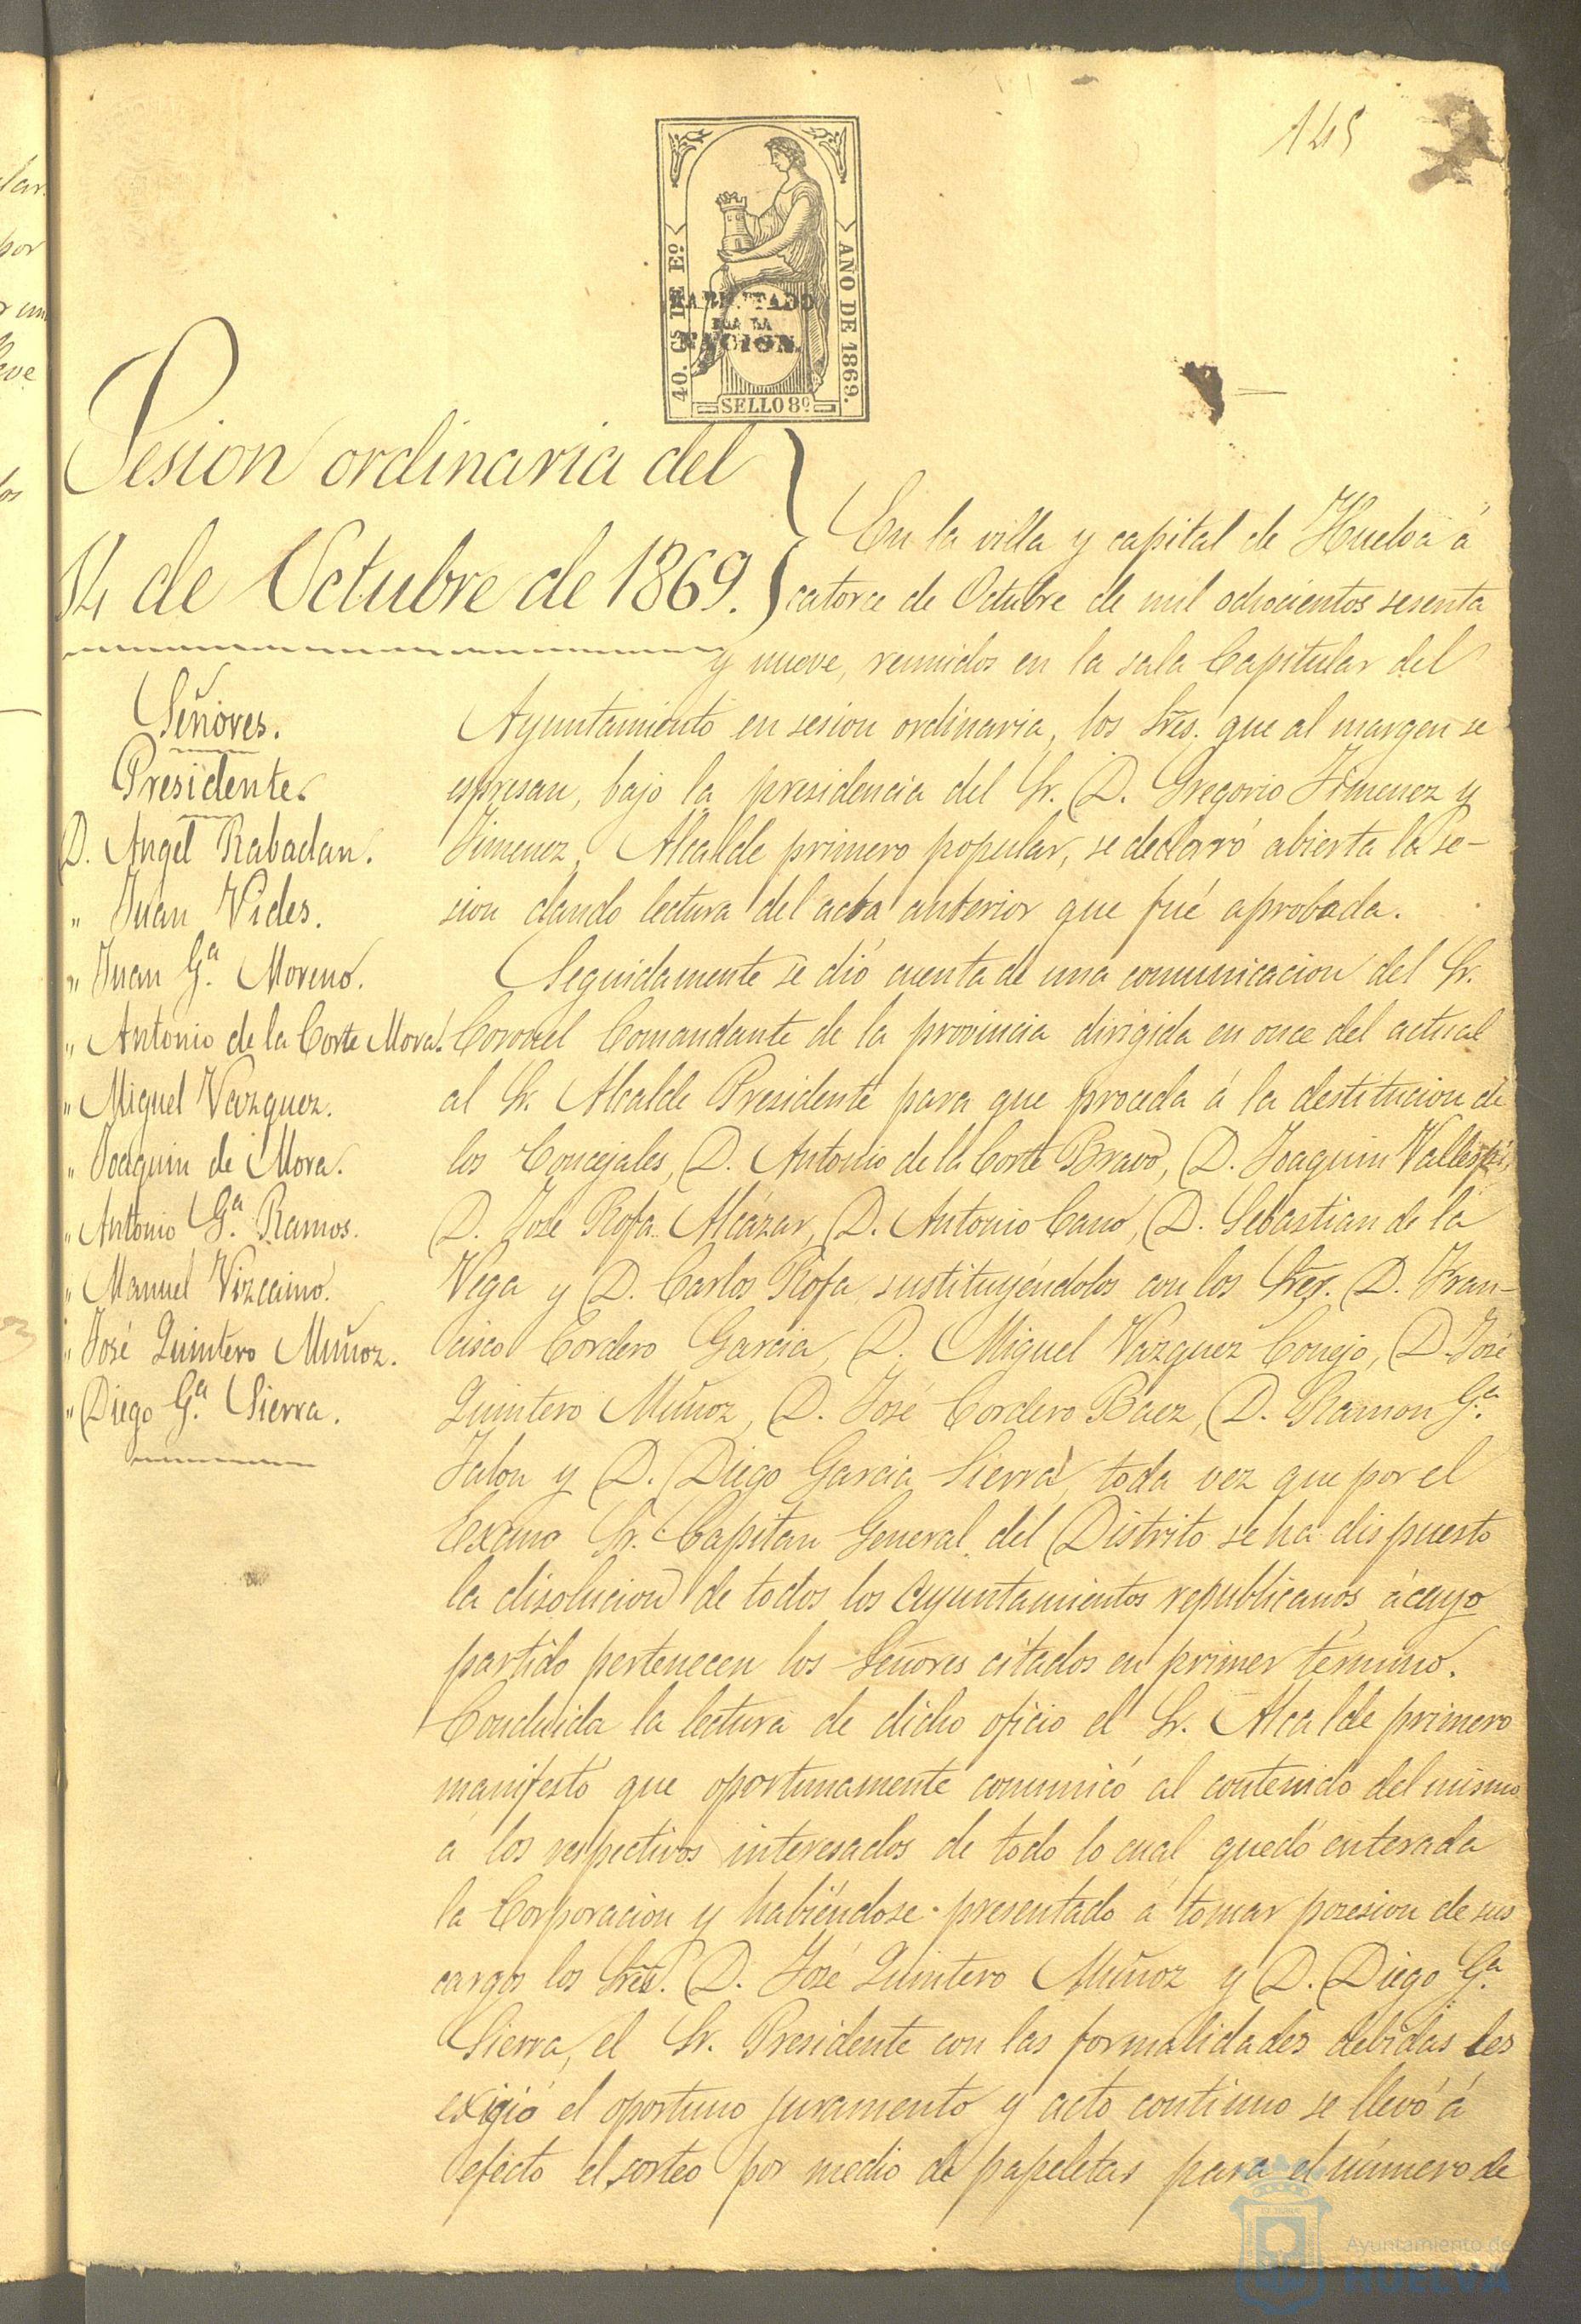 145
40. Cs DE Eº
AÑO DE 1869.
HABILITADO
POR LA
NACION.
SELLO 8º
Sesion ordinaria del
14 de Octubre de 1869.
Señores.
Presidente.
D. Angel Rabadan.
" Juan Vides.
" Juan G.ª Moreno.
" Antonio de la Corte Mora.
" Miguel Vazquez.
" Joaquin de Mora.
" Antonio G.ª Ramos.
" Manuel Vizcaino.
" José Quintero Muñoz.
" Diego G.ª Sierra.
En la villa y capital de Huelva á
catorce de Octubre de mil ochocientos sesenta
y nueve, reunidos en la sala Capitular del
Ayuntamiento en sesion ordinaria, los Sres. que al margen se
espresan, bajo la presidencia del Sr. D. Gregorio Jimenez y
Jimenez, Alcalde primero popular, se declaró abierta la se-
sion dando lectura del acta anterior que fué aprobada.
Seguidamente se dió cuenta de una comunicacion del Sr.
Coronel Comandante de la provincia dirigida en once del actual
al Sr. Alcalde Presidente para que proceda á la destitucion de
los Concejales, D. Antonio de la Corte Bravo, D. Joaquin
D. José Rofa Alcázar, D. Antonio Cano, D. Sebastian de la
Vega y D. Carlos Rofa sustituyéndolos con los Sres. D. Fran-
cisco Cordero Garcia, D. Miguel Vazquez Conejo, D. José
Quintero Muñoz, D. José Cordero Baez, D. Ramon G.ª
Jalon y D. Diego Garcia Sierra, toda vez que por el
Excmo Sr. Capitan General del Distrito se ha dispuesto
la disolucion de todos los Ayuntamientos republicanos á cuyo
partido pertenecen los Señores citados en primer término.
Concluida la lectura de dicho oficio el Sr. Alcalde primero
manifestó que oportunamente comunicó al contenido del mismo
a los respectivos interesados de todo lo cual quedó enterada
la Corporacion y habiéndose presentado á tomar posesion de sus
cargos los Sres. D. José Quintero Muñoz y D. Diego G.ª
Sierra, el Sr. Presidente con las formalidades debidas les
exigió el oportuno juramento y acto continuo se llevó á
efecto el sorteo por medio de papeletas para el número de
Ayuntamiento de
HUELVA